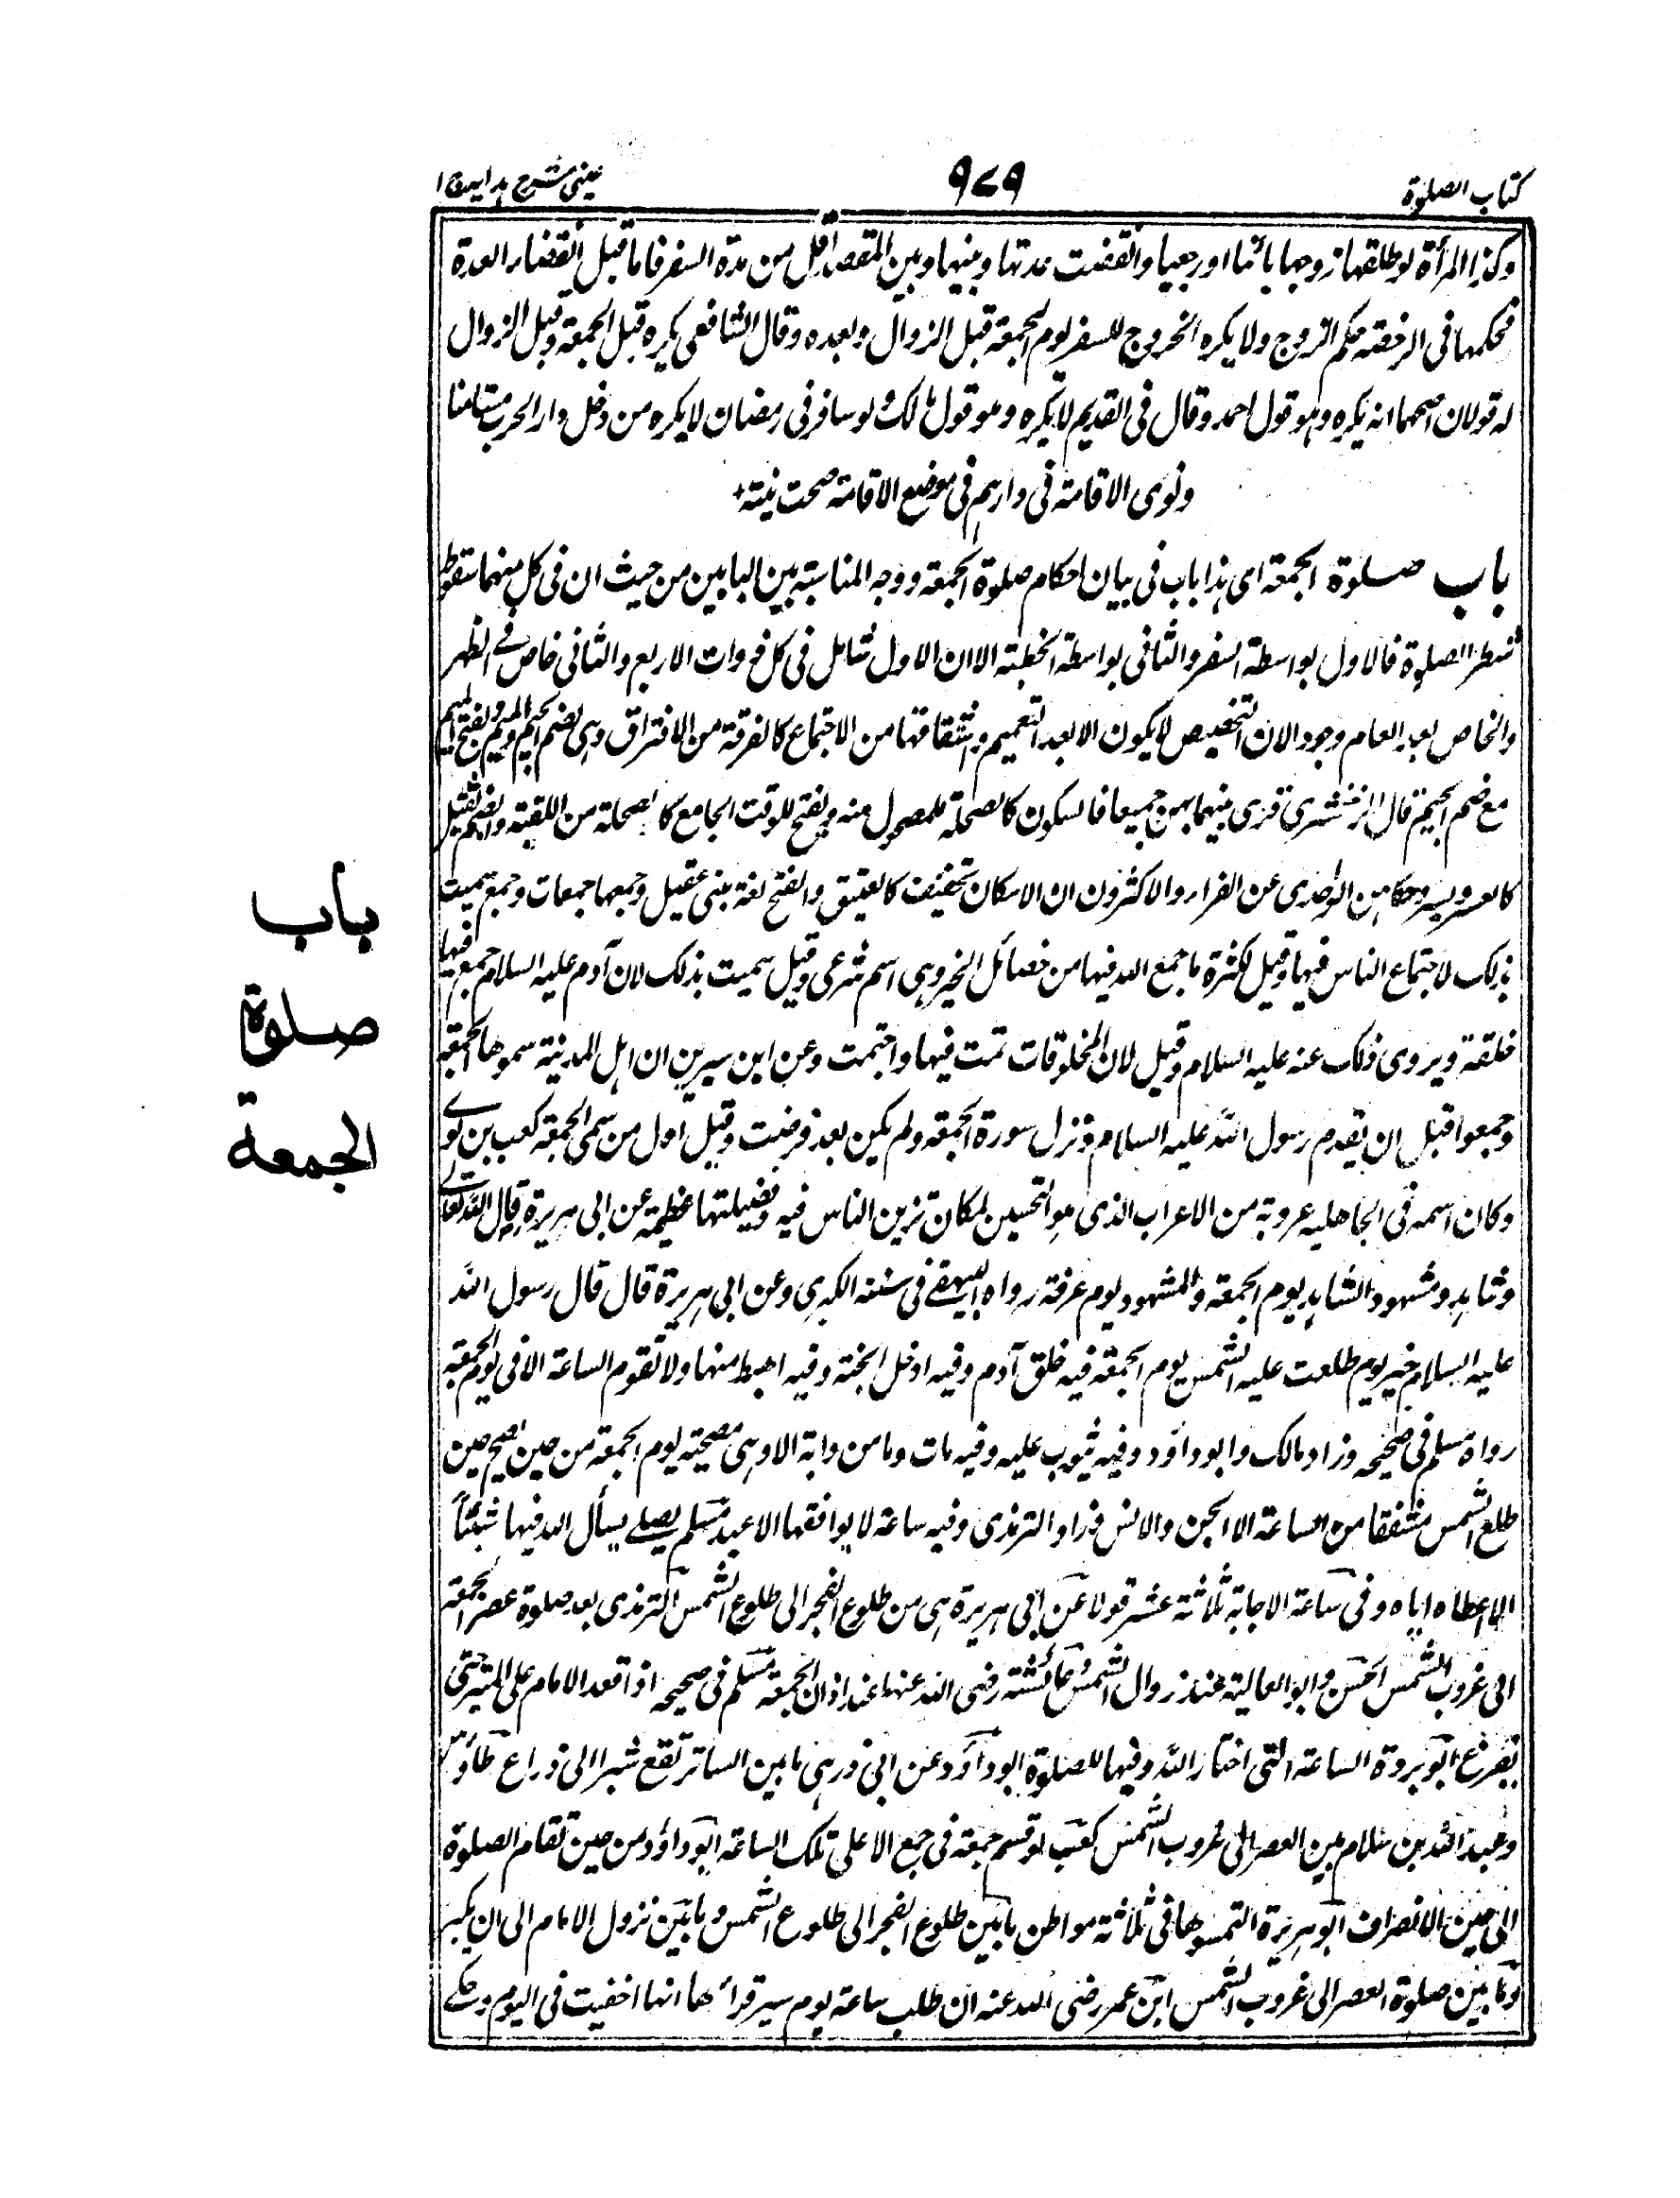 كتاب الصلوة
٩٧٩
عينى شرح هدايه ج ١
وكذا المرأة لو طلقها زوجها بائنا او رجعيا وانقضت عدتها وبينها وبين المقصد اقل من مدة السفر فاما قبل انقضاء العدة
فحكمها فى الرخصة حكم الزوج ولا يكره الخروج للسفر يوم الجمعة قبل الزوال وبعده وقال الشافعى يكره قبل الجمعة وقبل الزوال
له قولان اصحهما انه يكره وهو قول احمد وقال فى القديم لا يكره وهو قول مالك ولو سافر فى رمضان لا يكره من دخل دار الحرب مستامنا
ونوى الاقامة فى دارهم فى موضع الاقامة صحت نيته
باب صلوة الجمعة اى هذا باب فى بيان احكام صلوة الجمعة ووجه المناسبة بين البابين من حيث ان فى كل منهما سقوط
شطر الصلوة فالاول بواسطة السفر والثانى بواسطة الخطبة الا ان الاول شامل فى كل ذوات الاربع والثانى خاص فے الظهر
والخاص بعد العام وجود الان التخصيص لا يكون الا بعد التعميم واشتقاقها من الاجتماع كالفرقة من الافتراق وهى بضم الجيم والميم وبفتح الميم
مع ضم الجيم قال الزمخشرى قرئ بينهما بهن جميعا فالسكون كالضحكة للمضحول منه وبفتح للوقت الجامع كالضحكة من اللقبة والضم تثقيل
كالعسر ويسر وحكاهن الواحدى عن الفراء والاكثرون ان الاسكان تخفيف كالعتيق والفتح لغة بنى عقيل وجمعها جمعات وجمع سميت
بذلك لاجتماع الناس فيها وقيل لكثرة ما جمع الله فيها من خصائل الخير وهى اسم شرعى وقيل سميت بذلك لان آدم عليه السلام جمع فيها
خلقته ويروى ذلك عنه عليه السلام وقيل لان المخلوقات تمت فيها واجتمت وعن ابن سيرين ان اهل المدينة سموها الجمعة
وجمعوا قبل ان يقدم رسول الله عليه السلام ونزل سورة الجمعة ولم يكن بعد فرضت وقيل اول من سمى الجمعة كعب بن لوے
وكان اسمه فى الجاهليه عروبة من الاعراب الذى هو التحسين لمكان تزين الناس فيه وفضيلتها عظيمة عن ابى هريرة قال الله تعالے
وشاهد ومشهود الشاهد يوم الجمعة والمشهود يوم عرفة رواه البيهقے فى سننه الكبرى وعن ابى هريرة قال قال رسول الله
عليه السلام خير يوم طلعت عليه الشمس يوم الجمعة فيه خلق آدم وفيه ادخل الجنة وفيه اهبط منها ولا تقوم الساعة الا فى يوم الجمعة
رواه مسلم فى صحيحه وزاد مالك وابوداؤد وفيه تيب عليه وفيه مات وما من دابة الا وهى مصيخة يوم الجمعة من حين تصبح حين
طلع الشمس مشفقا من الساعة الا الجن والانس وزاد الترمذى وفيه ساعة لا يوافقها الا عبد مسلم يصلے يسأل الله فيها شيئاً
الا اعطاه اياه وفى ساعة الاجابة ثلاثة عشر قولا عن ابى هريرة هى من طلوع الفجر الى طلوع الشمس الترمذى بعد صلوة عصر الجمعة
الى غروب الشمس الحسن وابو العالية عند زوال الشمس وعائشة رضى الله عنها عند اذان الجمعة مسلم فى صحيحه اذا قعد الامام على المنبر حتى
يفرغ ابو بردة الساعة التى اختار الله وفيها للصلوة ابوداؤد وعن ابى ذر هى ما بين الساتر تقع شبرا الى ذراع طاؤس
وعبد الله بن سلام بين العصر الى غروب الشمس كعب لو قسم جمعة فى جمع الا على تلك الساعة ابوداؤد من حين تقام الصلوة
الى حين الانصراف ابو هريرة التمسوها فى ثلاثة مواطن ما بين طلوع الفجر الى طلوع الشمس وما بين نزول الامام الى ان يكبر
وما بين صلوة العصر الى غروب الشمس ابن عمر رضى الله عنه ان طلب ساعة يوم سيرقرأ ها انها اخفيت فى اليوم وحكے
باب
صلوة
الجمعة